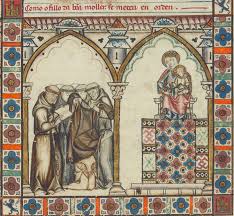 Como ofillo da bõa moller se meteu en orden.